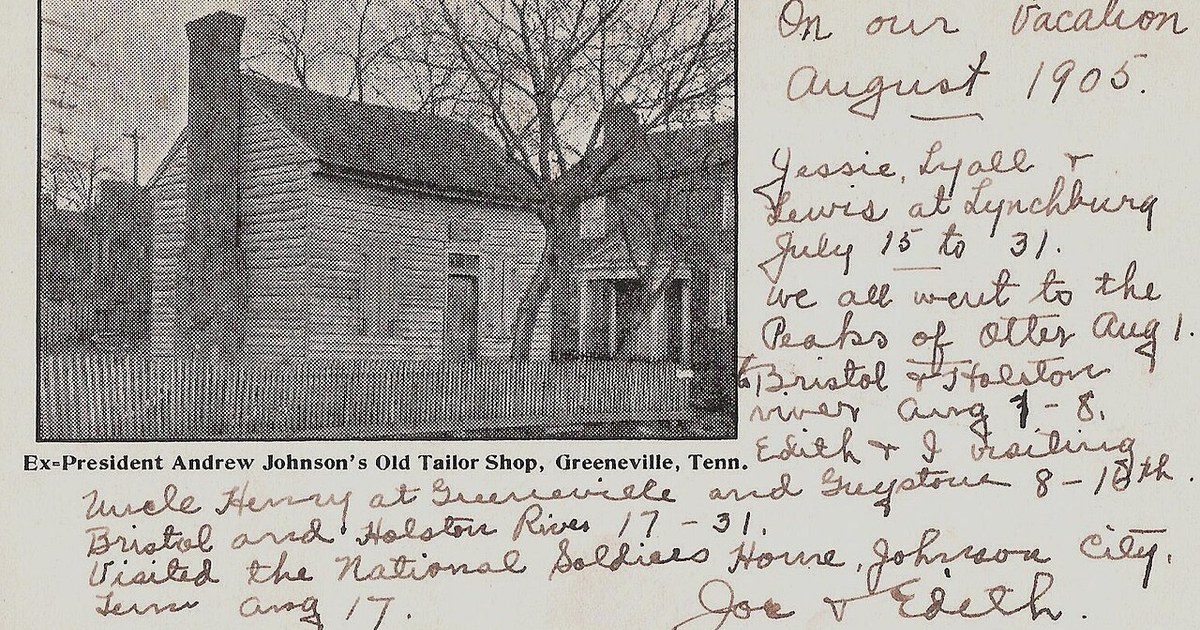 On our Vacation
August 1905.
Jessie, Lyall &
Lewis at Lynchburg
July 15 to 31.
We all went to the
Peaks of Otter Aug 1.
to Bristol & Holston
river Aug 1-8.
Edith & I visiting
Ex=President Andrew Johnson's Old Tailor Shop, Greeneville, Tenn.
Uncle Henry at Greeneville and Greystone 8-16th.
Bristol and Holston River 17-31.
Visited the National Soldiers Home, Johnson City,
Tenn Aug 17.
Joe & Edith.